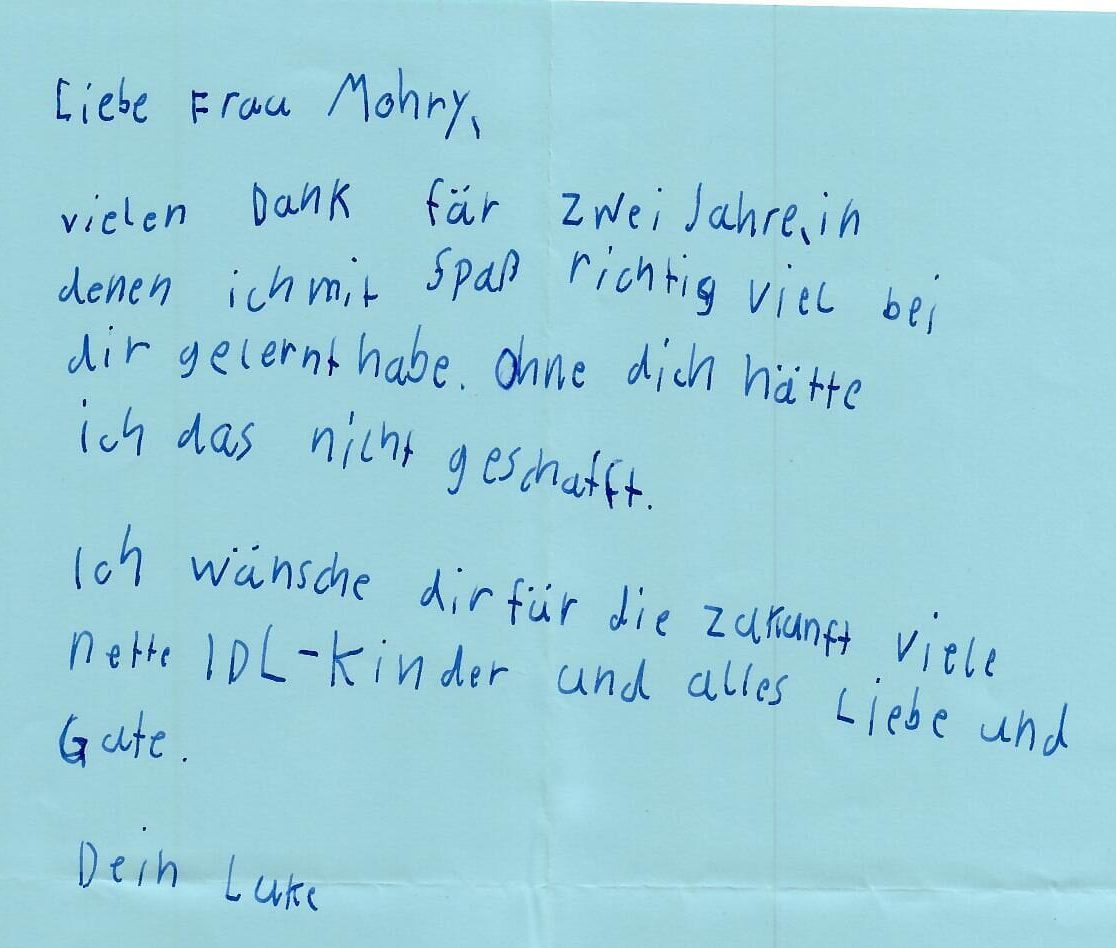 Liebe Frau Mohry,
vielen Dank für zwei Jahre, in
denen ich mit Spaß richtig viel bei
dir gelernt habe. Ohne dich hätte
ich das nicht geschafft.
Ich wünsche dir für die Zukunft viele
nette IDL-Kinder und alles Liebe und
Gute.
Dein Luke